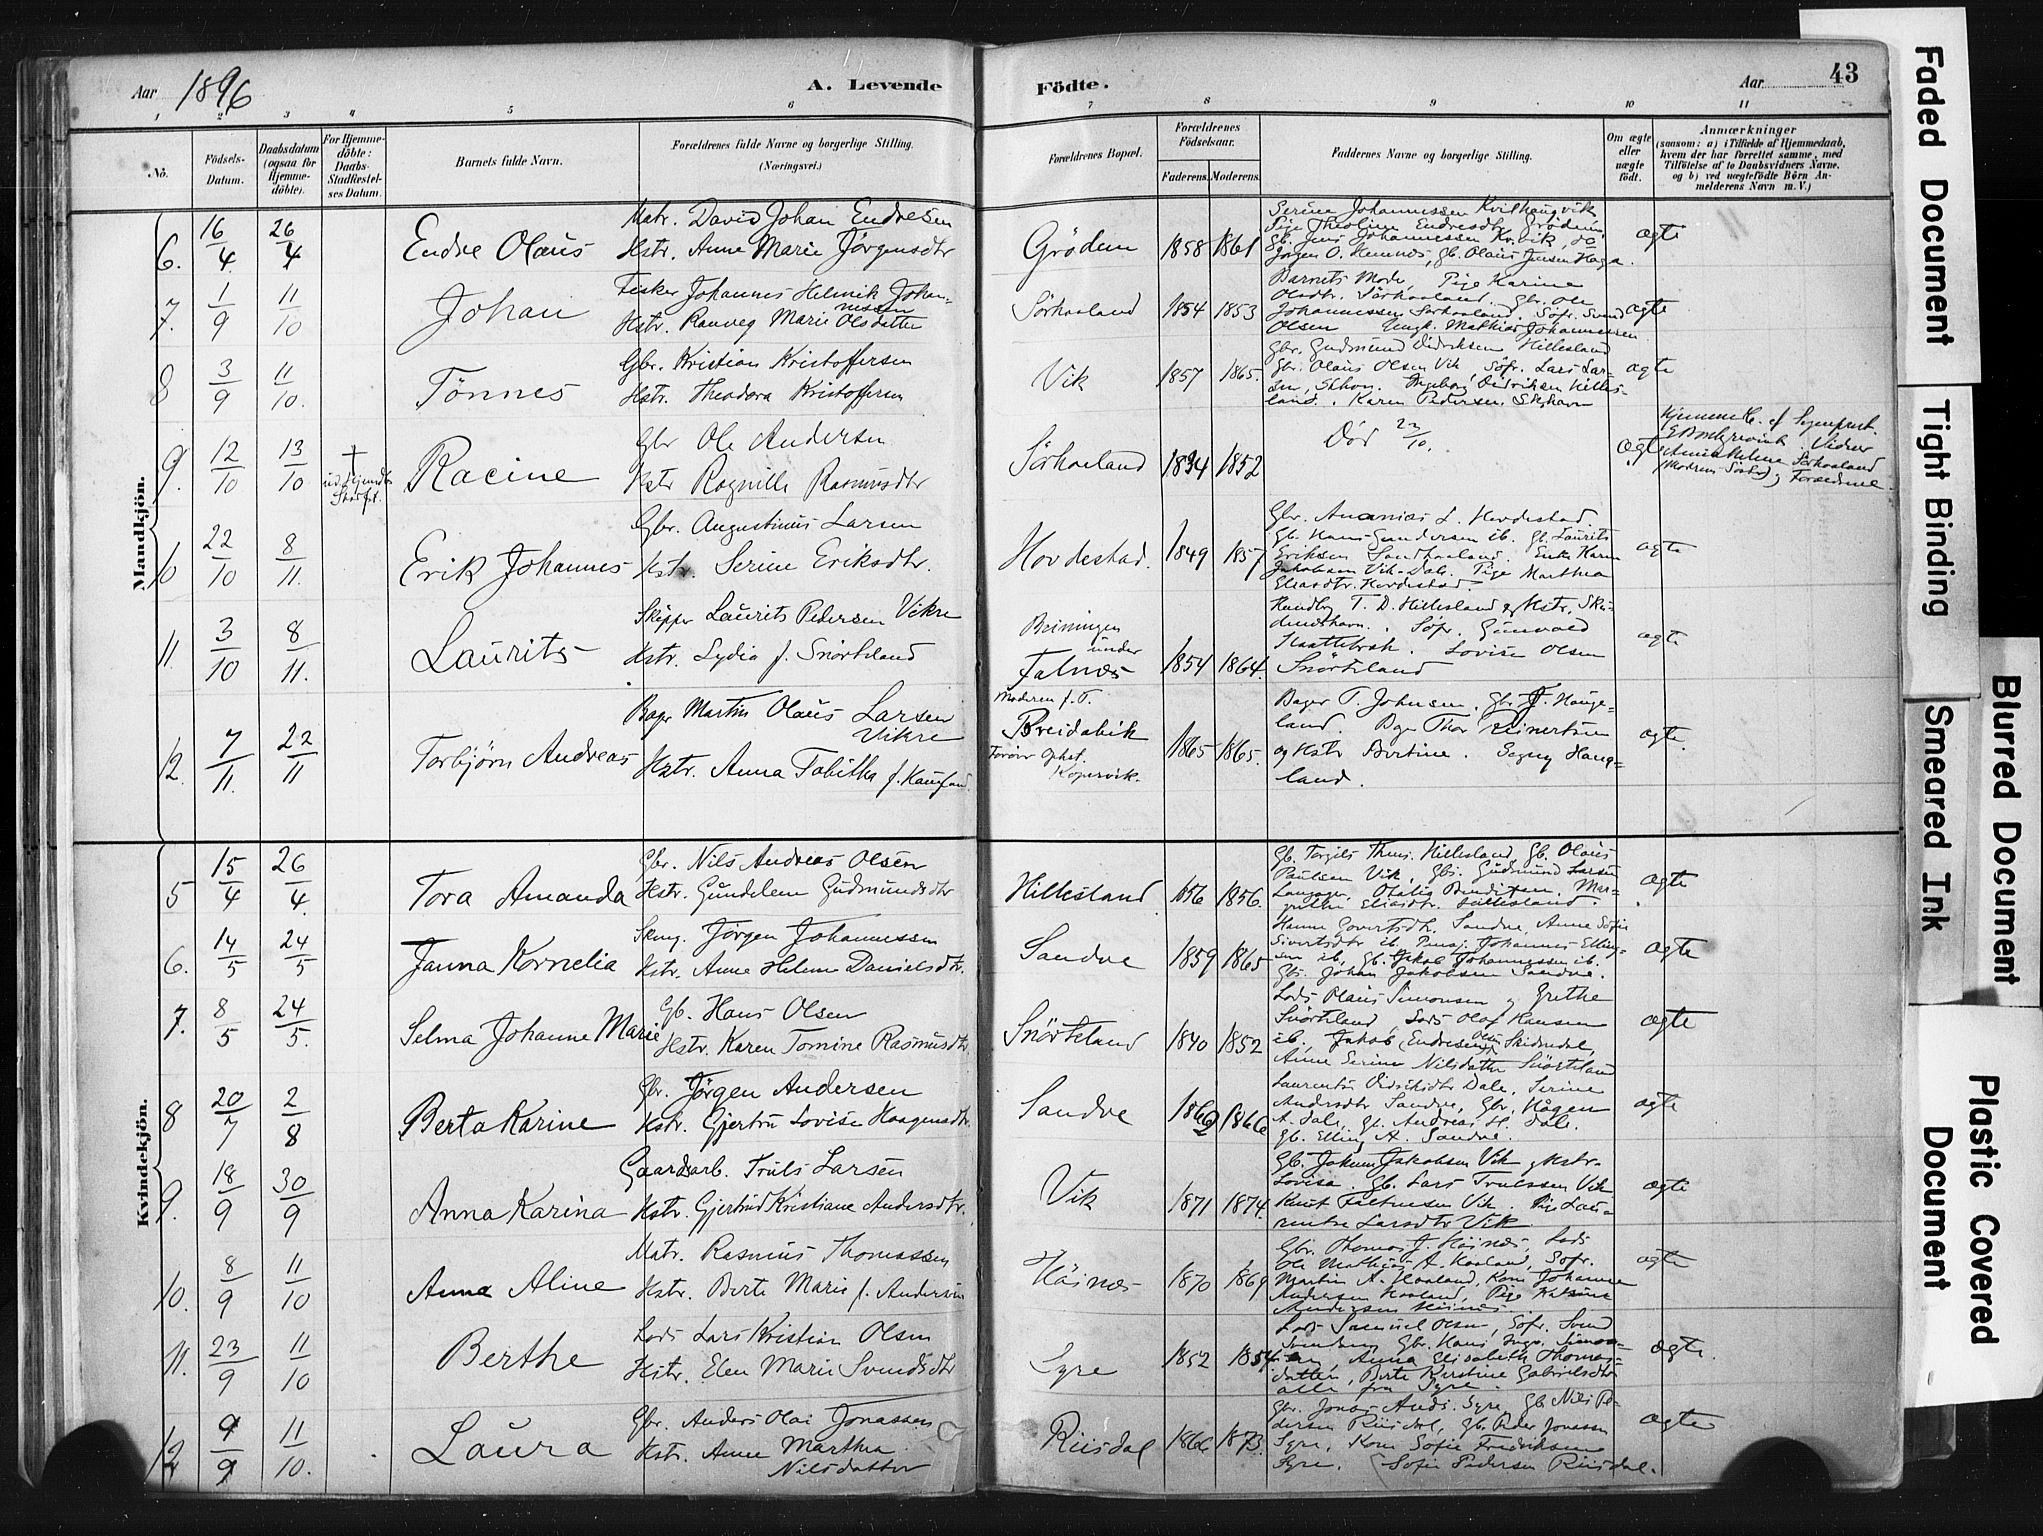 Aar 1896
A. Levende
Födte.
Aar
43
1 2 3 4 5 6 7 8 9 10 11
No.
Födsels-Datum.
Daabsdatum (ogsaa for Hjemme-döbte).
For Hjemme-döbte: Daabs-Stadfæstel-ses Datum.
Barnets fulde Navn.
Forældrenes fulde Navne og borgerlige Stilling. (Næringsvei.)
Forældrenes Bopæl.
Forældrenes Födselsaar.
Faderens.
Moderens.
Faddernes Navne og borgerlige Stilling.
Om ægte eller uægte födt.
Anmærkninger
(saasom: a) i Tilfælde af Hjemmedaab,
hvem der har forrettet samme, med
Tilföielse af to Daabsvidners Navne.
og b) ved uægtefödte Börn An-
melderens Navn m. V.)
Mandkjön.
6. 16/4 26/4 Endre Olaus
Matr. David Johan Endresen
Hstr. Anne Marie Jörgensdtr
Grödem 1858 1861
Jörgen O. Hemnes, Gb. Olaus Jensen Haga.
ægte
7. 1/9 11/10 Johan
Fisker Johannes Helmik Johan-
nessen
Hstr. Ranveg Marie Olsdatter
Sörhaaland 1854 1853
Barnets Mode, Pige Karine
Olsdtr. Sörhaaland. Gbr. Ole
Johannessen Sörhaaland. Söfr. Svend
Olsen Ungk. Mathias Johannessen
ægte
8 3/9 11/10. Tönnes
Gbr. Kristian Kristoffersen
Hstr. Theodora Kristoffersen
Vik 1857 1865.
Gbr. Gudmund Didriksen Hillesland
Gbr. Olaus Olsen Vik, Söfr. Lars Lar-
sen, Skhvn. Ingeborg Didriksen Hilles-
land. Karen Pedersen, Skhavn
ægte
9. 12/10 13/10 †
Racine
Gbr Ole Andersen
Hstr Ragnille Rasmusdtr
Sörhaaland 1834 1852
Död 22/10.
ægte
10 22/10 8/11. Erik Johannes
Gbr. Augustinus Larsen
Hstr. Serine Eriksdtr.
Hovdestad. 1849 1857
Gbr. Ananias L. Hovdestad
Gb. Hans Gundersen ib. Gb. Laurits
Eriksen Sandhaaland. Enke Karen
Jakobsen Vik-Dale. Pige Marthea
Eliasdtr. Hovdestad
ægte
11. 3/10 8/11. Laurits
Skipper Laurits Pedersen Vikre
Hstr. Lydia f. Snörteland
under
Falnes 1854 1864.
Handlsg T. D. Hillesland og Hstr, Sku-
desneshavn. Söfr. Gunvald
Lovise Olsen
Snörteland
ægte
12. 7/11. 22/11 Torbjörn Andreas
Bager Martin Olaus Larsen
Vikre
Hstr. Anna Tabitha f. Haugland
Moderen f. T.
Breidablik
Kopervik.
1865 1865.
Bager T. Johnsen. Gbr. J. Hauge-
land. Bager Thor Reinertsen
og Hstr Bertine. Signy Haug-
land.
ægte.
Kvindekjön.
5 15/4 26/4. Tora Amanda
Gbr. Nils Andreas Olsen
Hstr. Gundelene Gudmundsdtr
Hillesland 1856 1856.
Gb. Torgils Thms. Hillesland, Gb. Olaus
Paulsen Vik, Gbr. Gudmund Larsen
Langager, Otalia Bendixen, Mar-
grethe Eliasdtr. Hillesland.
ægte
6. 14/5 24/5 Janna Kornelia
Skmg. Jörgen Johannessen
Hstr. Anne Helene Danielsdtr.
Sandve 1859 1865
Hanna Govertsdtr. Sandve, Anne Sofie
Sivertsdtr ib. Johannes Elling-
sen ib, Gb. Jakob Johannessen ib.
Gbr. Johan Jakobsen Sandve.
ægte
7. 8/5 24/5. Selma Johanne Marie
Gb. Hans Olsen
Hstr. Karen Tomine Rasmusdtr.
Snörteland 1840 1852
Lods Olaus Simonsen og Grethe
Snörteland, Lods Olaf Hansen
ib. Jakob Endresen
Anne Serine Nilsdatter Snörteland
ægte
8 20/7 2/8 Berta Karine
Gbr. Jörgen Andersen
Hstr. Gjertru Lovise Haagensdtr.
Sandve 1862 1866
Laurentse Didrikdtr Dale, Serine
Andersdtr Sandve, Gbr. Hågen
A. Dale, Gb. Andreas H. Dale.
Gb. Elling A. Sandve.
ægte
9. 18/9 30/9 Anna Karina
Gaardsarb. Truls Larsen
Hstr. Gjertrud Kristiane Andersdtr.
Vik 1871 1874.
Gb. Johan Jakobsen Vik, Hstr.
Lovisa. Gb. Lars Trulssen Vik
Knut Vik. Pige Lau-
rentse Larsdtr Vik
ægte
10. 8/9 11/10 Anna Aline
Matr. Rasmus Thomassen
Hstr. Berte Marie f. Andersen
Höines 1870 1869
Gbr. Thomas J. Höines, Lods
Ole Mathias A. Haaland, Söfr.
Martin A. Haaland, Kone Johanne
Andersen Haaland, Pige
Andersen Höines
ægte
11. 23/9 11/10 Berthe
Lods Lars Kristian Olsen
Hstr. Elen Marie Svendsdtr
Syre 1852 1854
Lods Samuel Olsen, Söfr. Svend
Svendsen, Gbr. Hans Simon-
sen, Anna Elisabeth Thomas-
datter, Berte Kirstine Gabrielsdtr
alle fra Syre.
ægte.
12 9/9 11/10. Laura
Gbr. Anders Olai Jonassen
Hstr. Anne Marthea
Nilsdatter
Riisdal 1866 1873.
Gbr. Jonas Ands. Syre, Gb Nils Pe-
dersen Riisdal, Gb. Peder Jonassen
Syre, Kone Sofie Fredriksen
Syre. Sofie Pedersen Riisdal.
ægte
Faded Document
Tight Binding
Smeared Ink
Blurred Document
Plastic Covered
Document